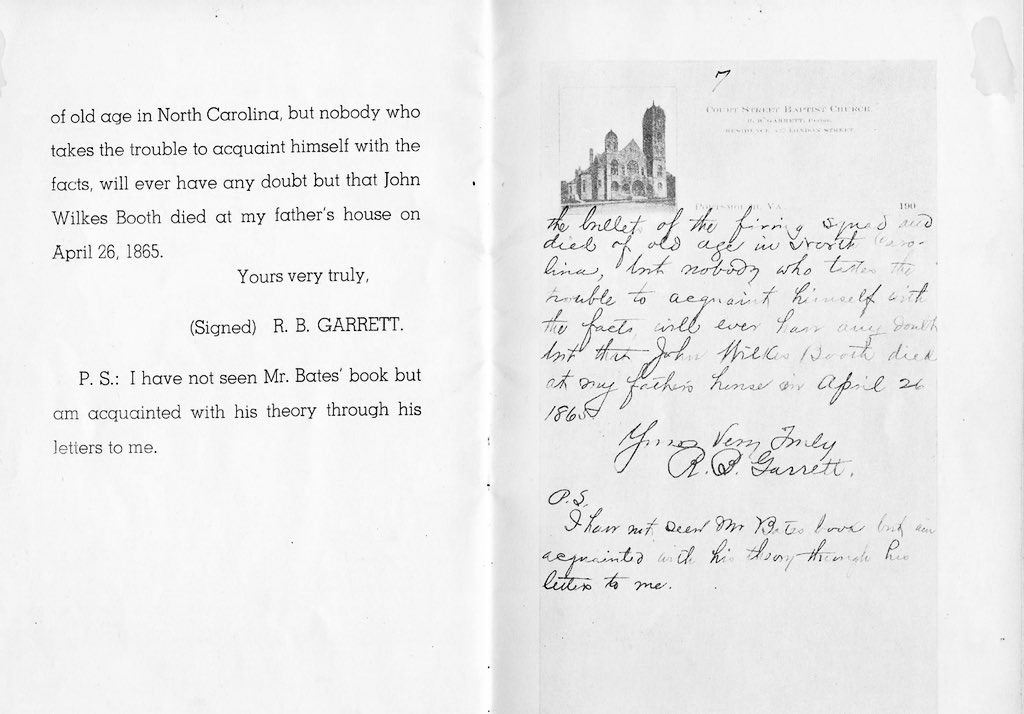 of old age in North Carolina, but nobody who
takes the trouble to acquaint himself with the
facts, will ever have any doubt but that John
Wilkes Booth died at my father's house on
April 26, 1865.
Yours very truly,
(Signed) R. B. GARRETT.
P. S.: I have not seen Mr. Bates' book but
am acquainted with his theory through his
letters to me.
7
COURT STREET BAPTIST CHURCH.
R. B. GARRETT, PASTOR.
RESIDENCE LONDON STREET.
PORTSMOUTH, VA. 190
the bullets of the firing squad and
died of old age in North Caro-
lina, but nobody who takes the
trouble to acquaint himself with
the facts, will ever have any doubt
but that John Wilkes Booth died
at my father's house on April 26
1865.
Yours Very Truly
R. B. Garrett.
P.S.
I have not seen Mr Bates book but am
acquainted with his theory through his
letters to me.